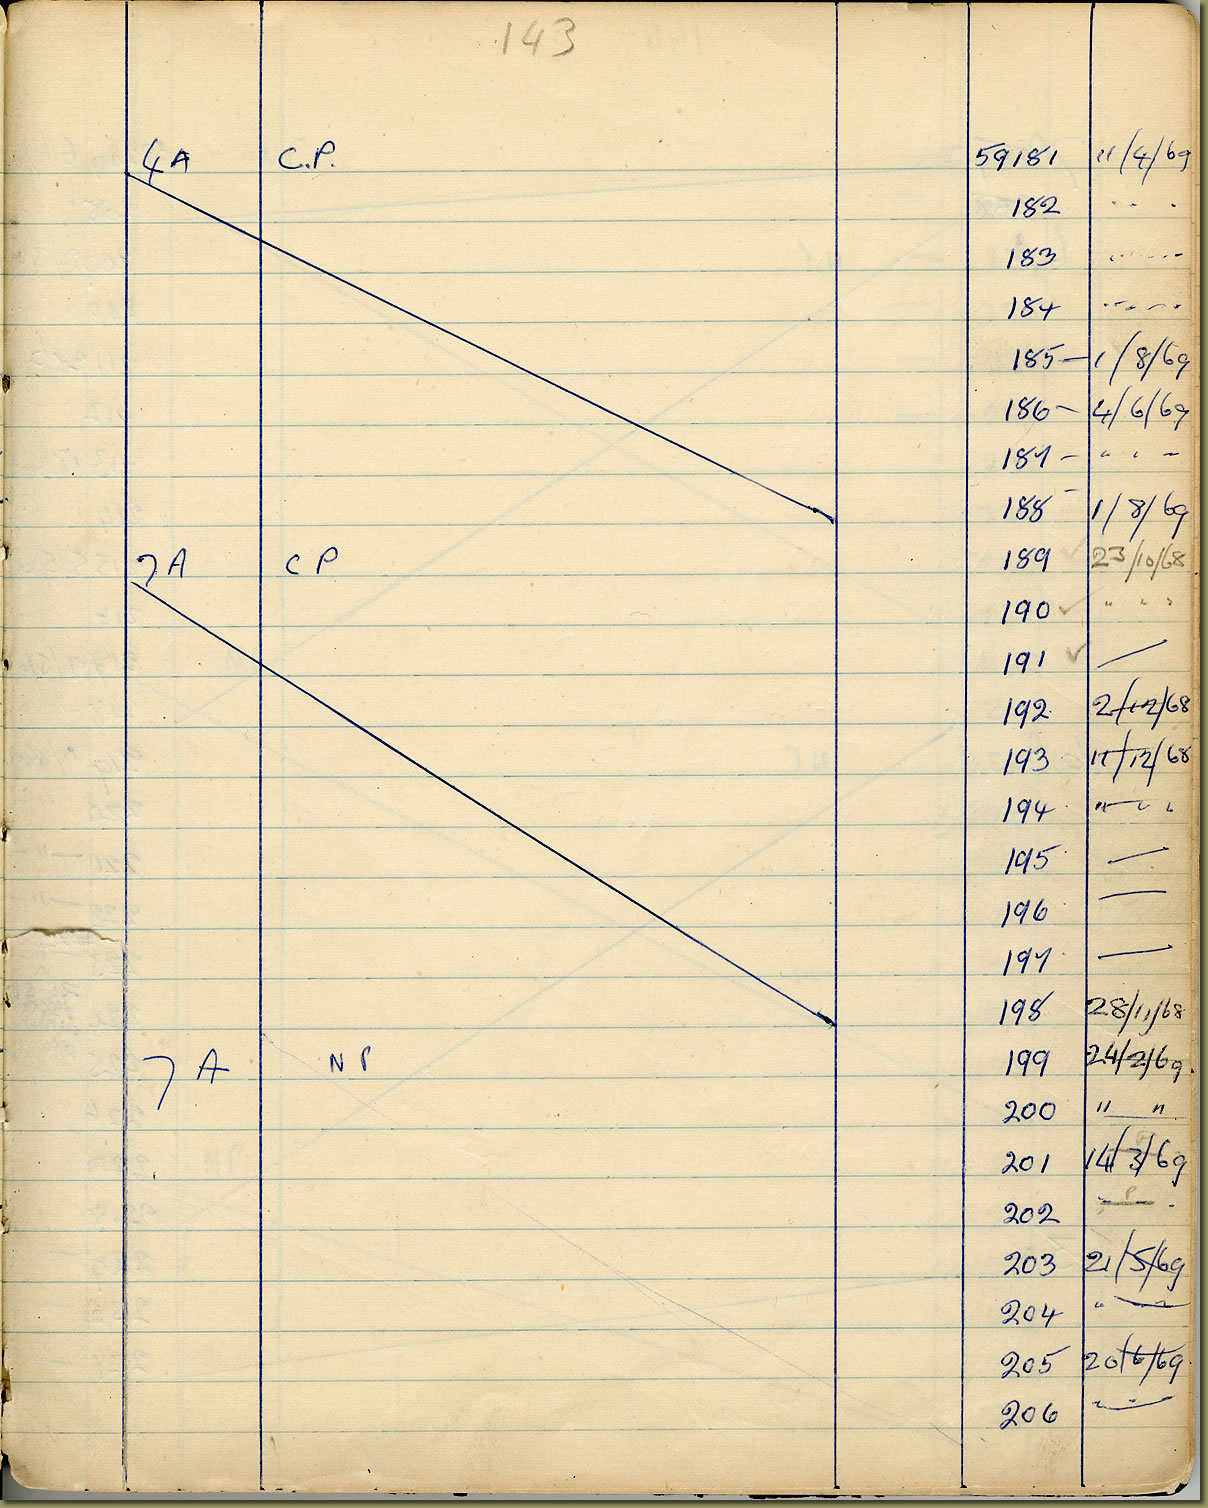 143
4A C.P. 59181 11/4/69
182 " " "
183 " " "
184 " " "
185 — 1/8/69
186 — 4/6/69
187 — " " "
188 — 1/8/69
7A CP 189 ✓ 23/10/68
190 ✓ " " "
191 ✓ —
192 2/12/68
193 11/12/68
194 " " "
195 —
196 —
197 —
198 28/11/68
7A NP 199 24/2/69
200 " "
201 14/3/69
202 " — "
203 21/5/69
204 " —
205 20/6/69
206 " —